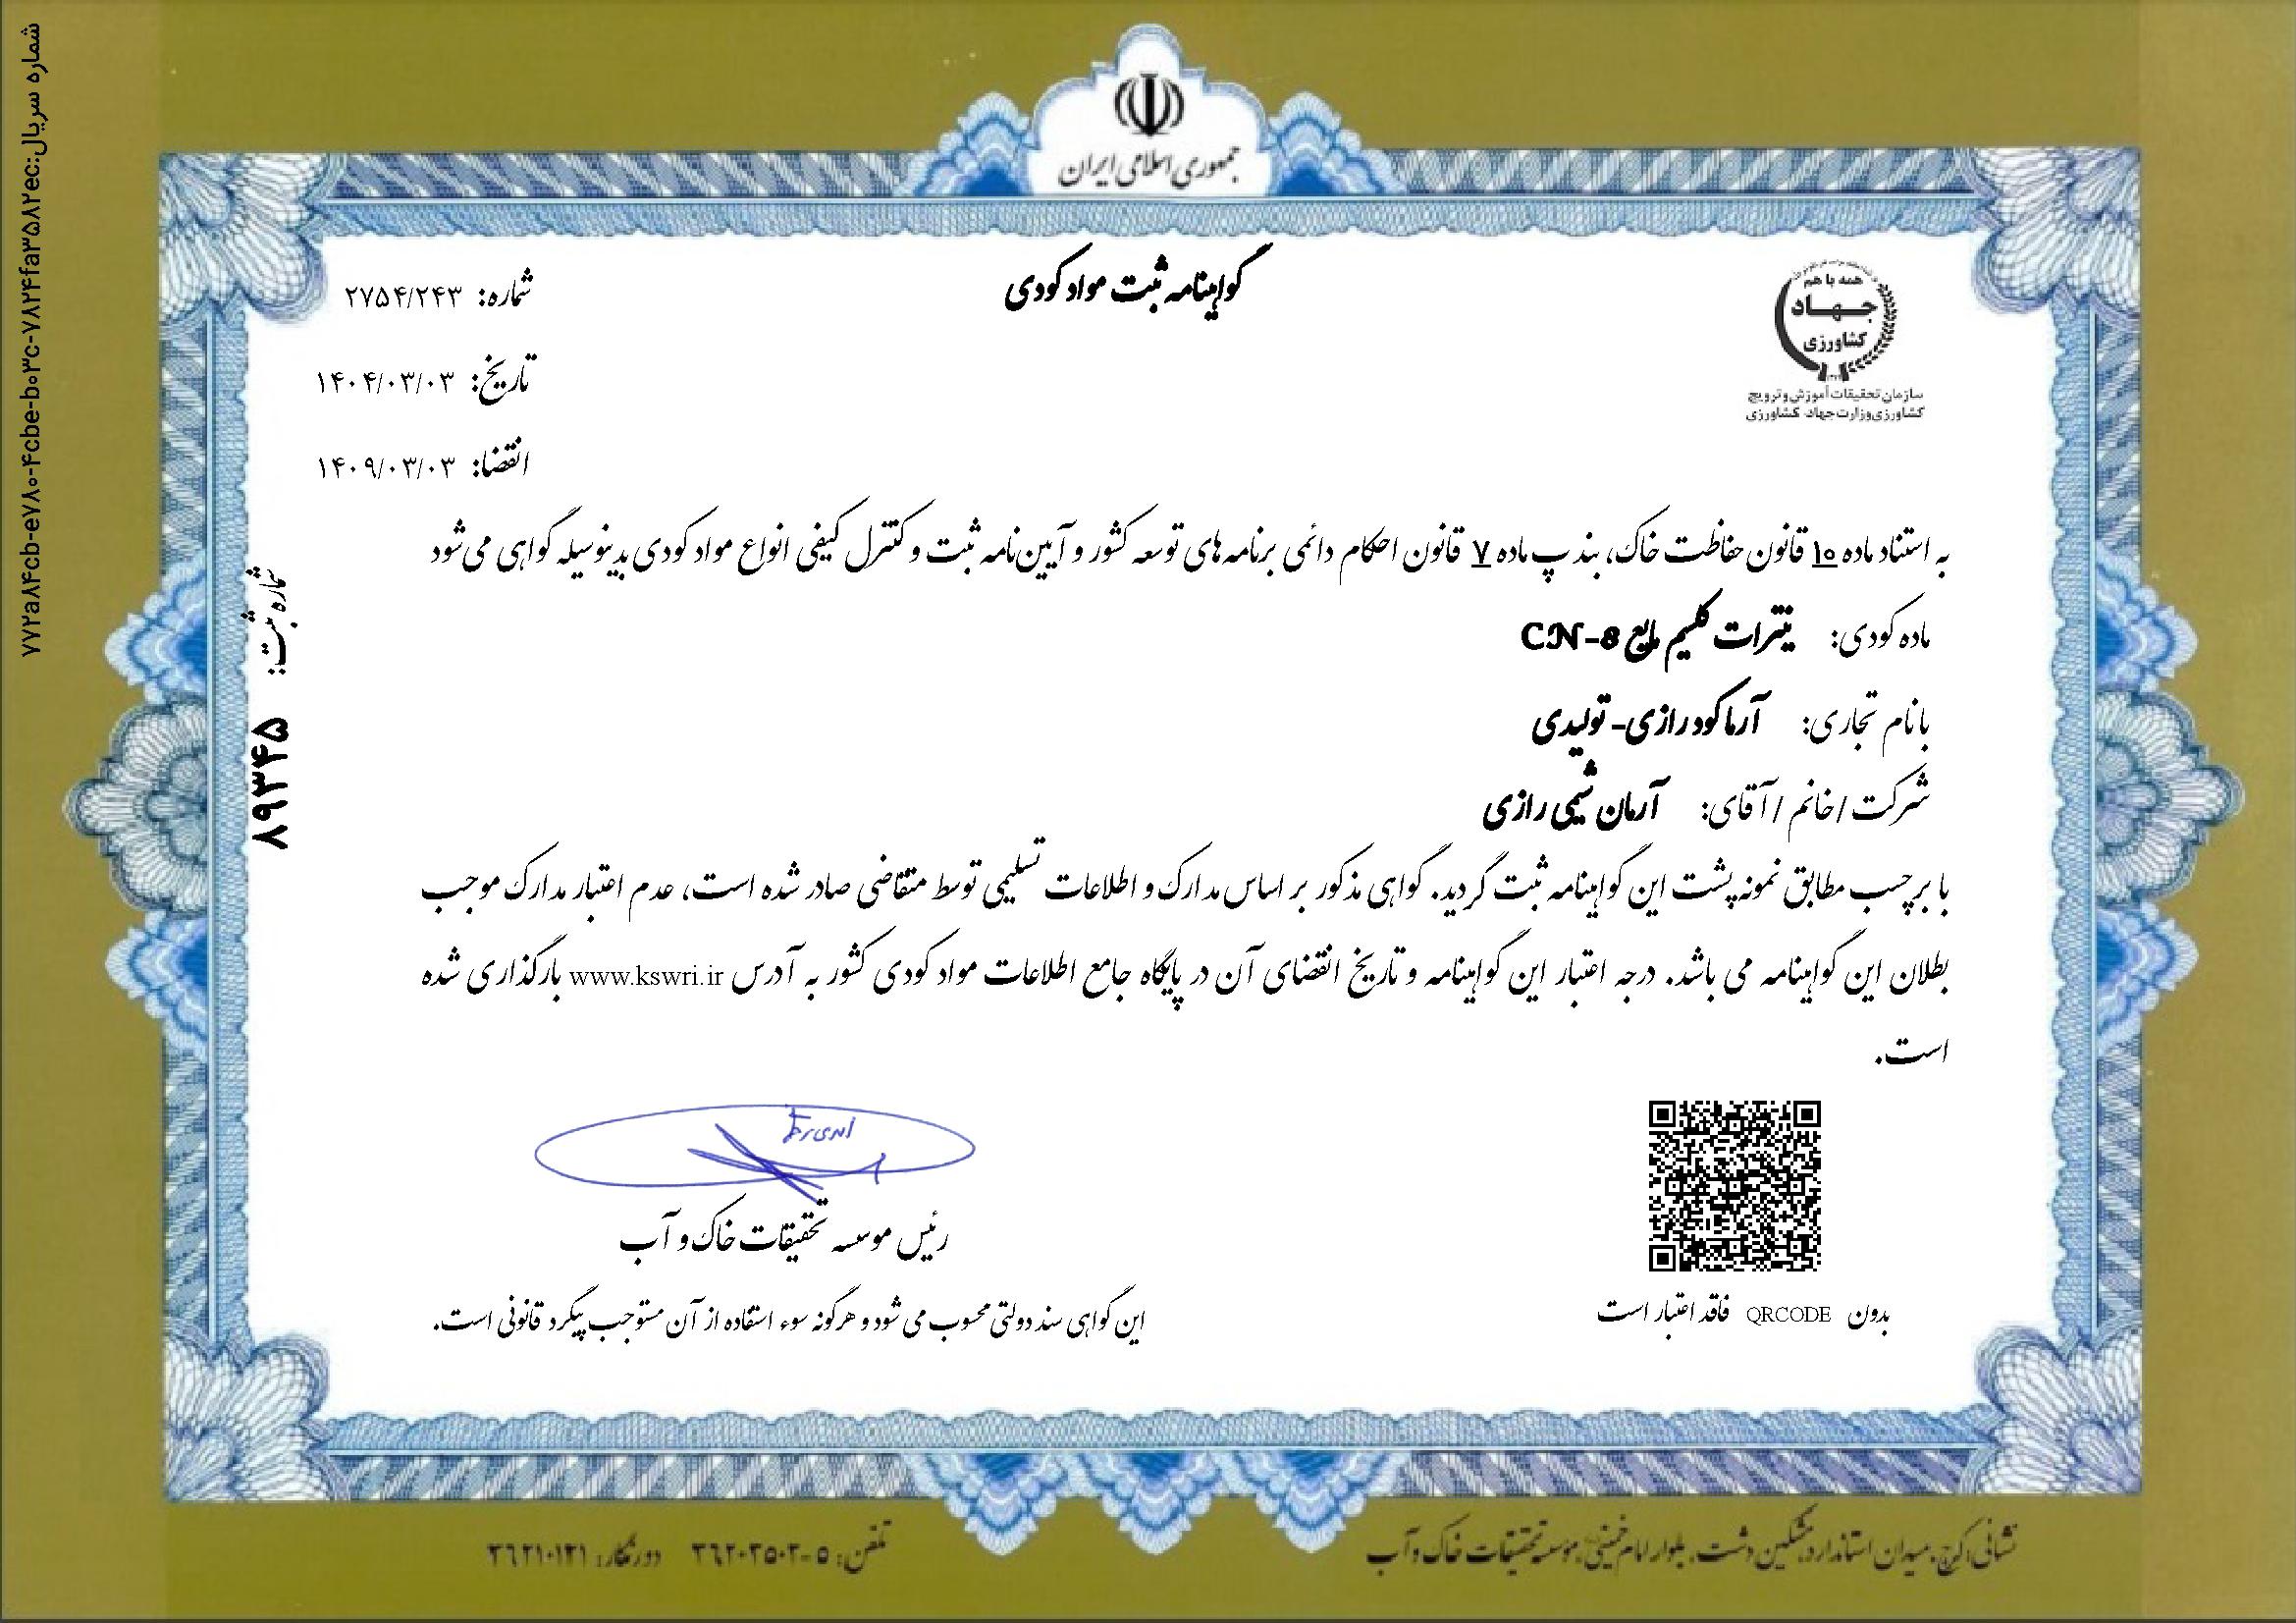 شماره سریال:۷۷۲a۸۴cb-e۷۸۰-۴cbe-b۰۳c-۷۸۲۴fa۳۵۸۲ec
جمهوری اسلامی ایران
گواهینامه ثبت مواد کودی
شماره: ۲۷۵۴/۲۴۳
تاریخ: ۱۴۰۴/۰۳/۰۳
انقضا: ۱۴۰۹/۰۳/۰۳
همه با هم
جهاد
کشاورزی
سازمان تحقیقات آموزش و ترویج
کشاورزی وزارت جهاد کشاورزی
به استناد ماده ۱۰ قانون حفاظت خاک، بند پ ماده ۷ قانون احکام دائمی برنامه های توسعه کشور و آیین نامه ثبت و کنترل کیفی انواع مواد کودی بدینوسیله گواهی می شود
ماده کودی: نیترات کلسیم مایع CN-8
با نام تجاری: آرما کود رازی- تولیدی
شرکت / خانم / آقای: آرمان شیمی رازی
با برچسب مطابق نمونه پشت این گواهینامه ثبت گردید. گواهی مذکور بر اساس مدارک و اطلاعات تسلیمی توسط متقاضی صادر شده است، عدم اعتبار مدارک موجب
بطلان این گواهینامه می باشد. درجه اعتبار این گواهینامه و تاریخ انقضای آن در پایگاه جامع اطلاعات مواد کودی کشور به آدرس www.kswri.ir بارگذاری شده
است.
شماره ثبت: ۸۹۳۴۵
رئیس موسسه تحقیقات خاک و آب
بدون QRCODE فاقد اعتبار است
این گواهی سند دولتی محسوب می شود و هرگونه سوء استفاده از آن مستوجب پیگرد قانونی است.
نشانی: کرج، میدان استاندارد، مشکین دشت، بلوار امام خمینی، موسسه تحقیقات خاک و آب
تلفن: ۵-۳۶۲۰۲۵۰۲ دورنگار: ۳۶۲۱۰۱۲۱